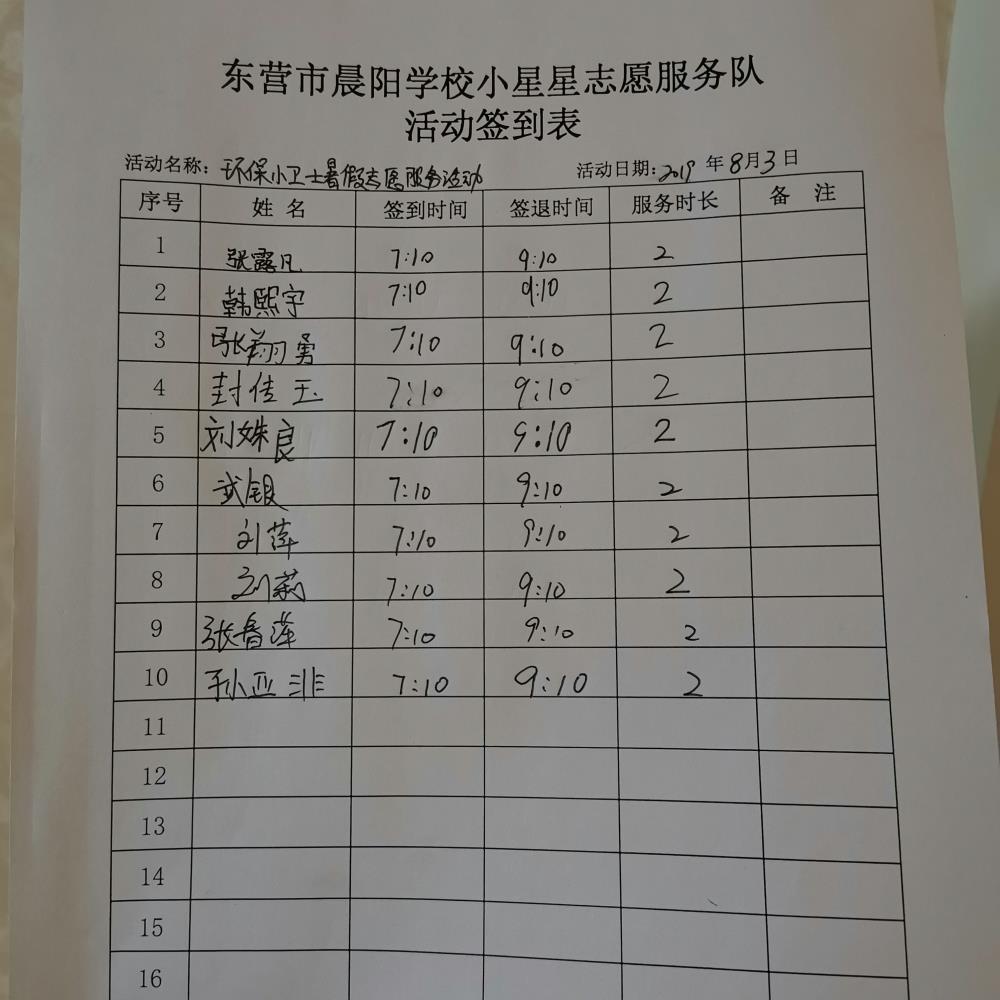 东营市晨阳学校小星星志愿服务队
活动签到表
活动名称：环保小卫士暑假志愿服务活动 活动日期：2019年8月3日
序号 姓名 签到时间 签退时间 服务时长 备注
1 张露凡 7:10 9:10 2
2 韩熙宇 7:10 9:10 2
3 张翔勇 7:10 9:10 2
4 封佳玉 7:10 9:10 2
5 刘姝良 7:10 9:10 2
6 武银 7:10 9:10 2
7 刘萍 7:10 9:10 2
8 刘莉 7:10 9:10 2
9 张春萍 7:10 9:10 2
10 孙亚非 7:10 9:10 2
11
12
13
14
15
16